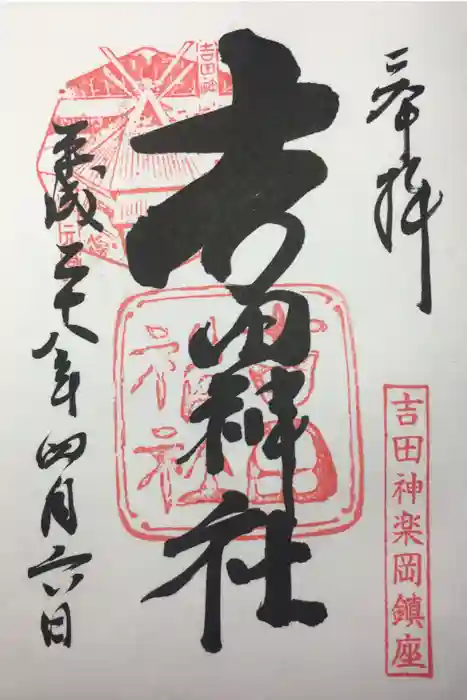 奉拝
吉田神楽岡鎮座
吉田神社
吉田神社
吉田神
平成三十年四月六日